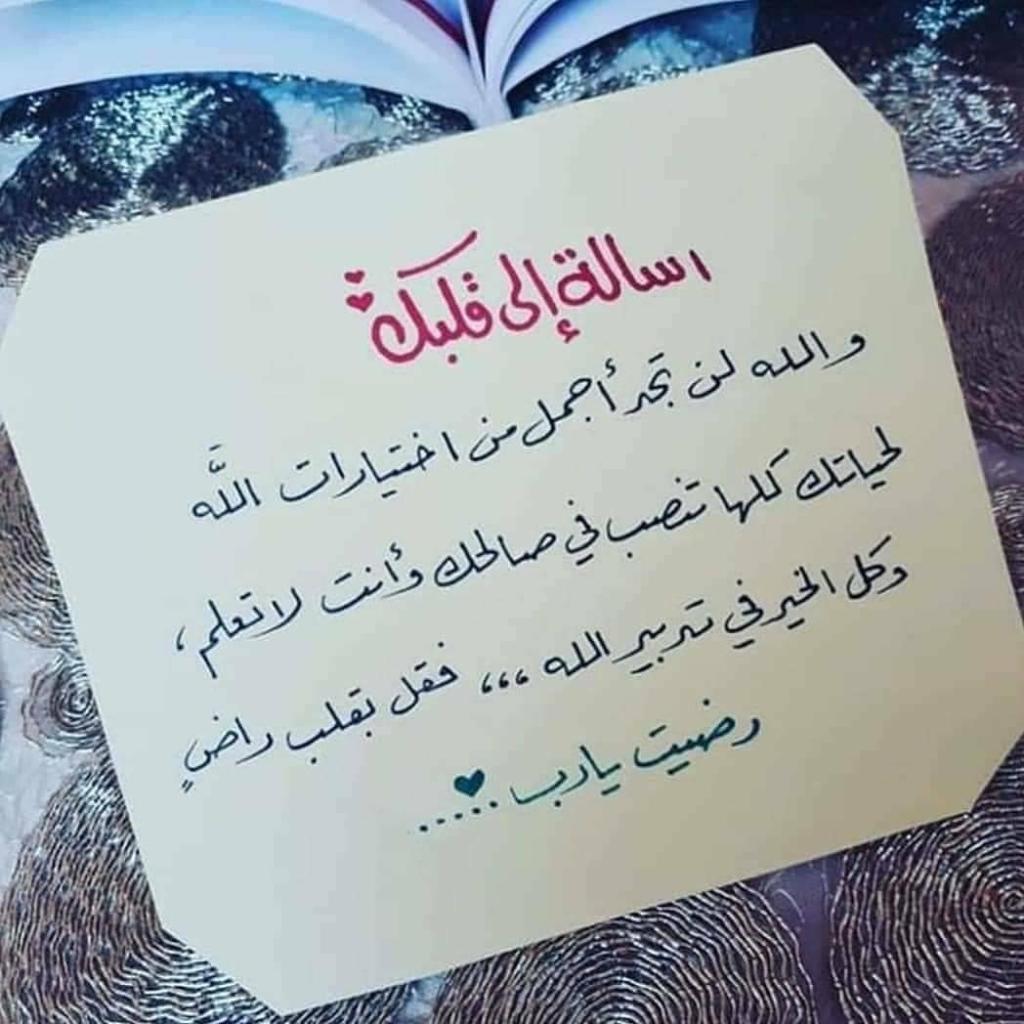 رسالة إلى قلبك
والله لن تجد أجمل من اختيارات اللَّه
لحياتك كلها تنصب في صالحك وأنت لا تعلم ،
وكل الخير في تدبير الله ،،، فقل بقلب راضٍ
رضيت يارب .....